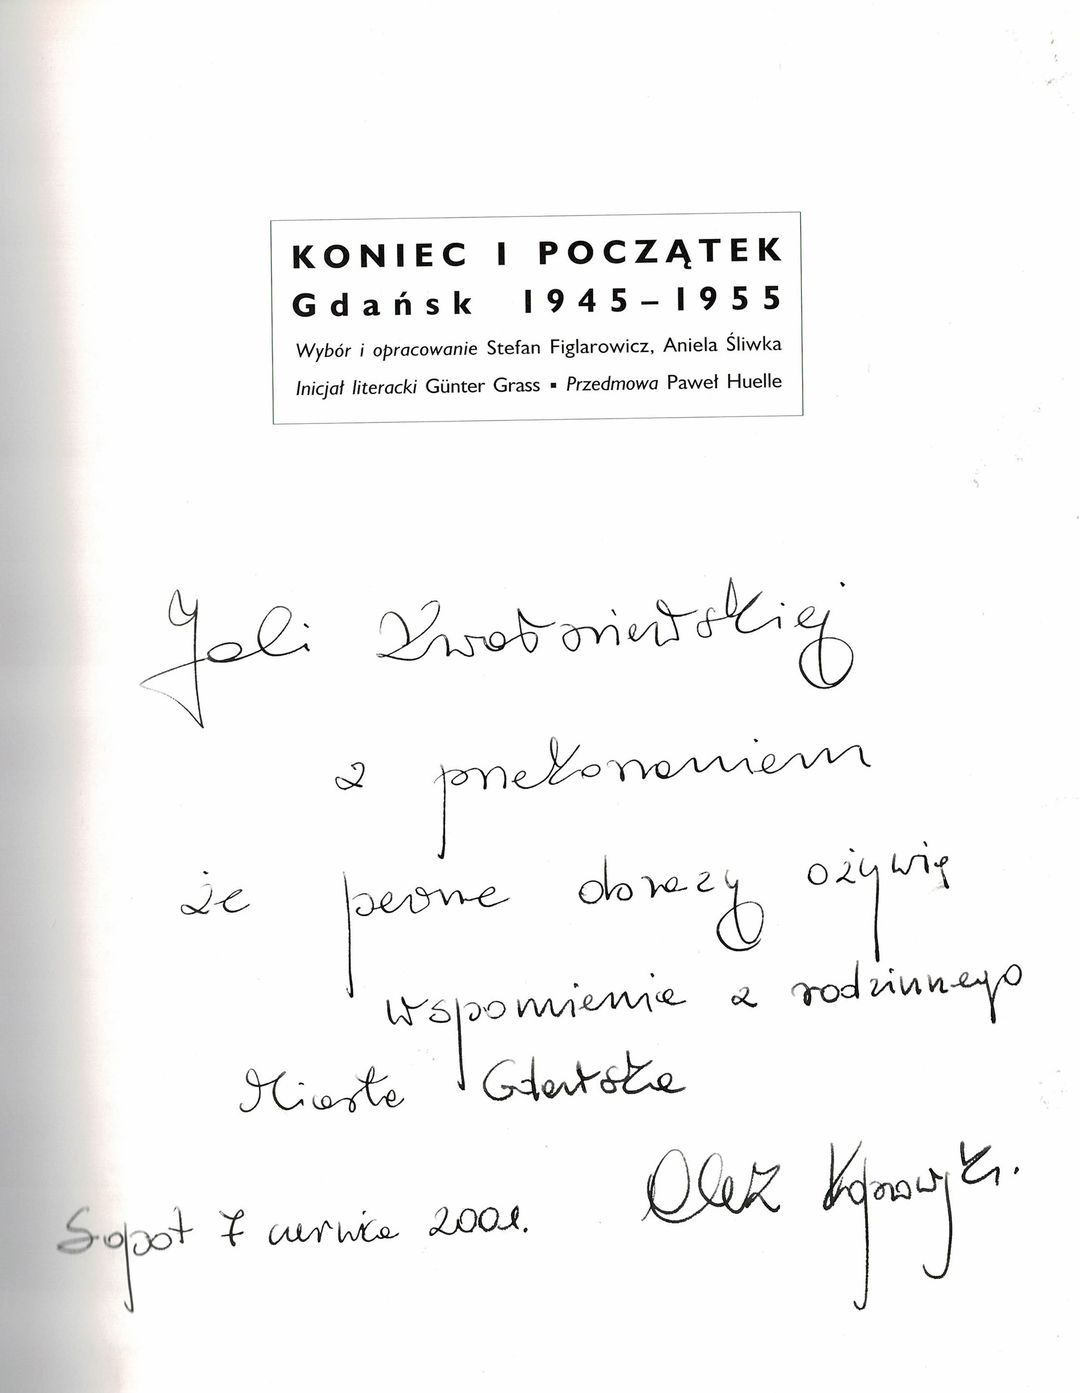 KONIEC I POCZĄTEK
Gdańsk 1945–1955
Wybór i opracowanie Stefan Figlarowicz, Aniela Śliwka
Inicjał literacki Günter Grass ▪ Przedmowa Paweł Huelle
Joli Kwaśniewskiej
z przekonaniem
że pewne obrazy ożywią
wspomnienia z rodzinnego
Miasta Gdańska
Sopot 7 czerwca 2001.